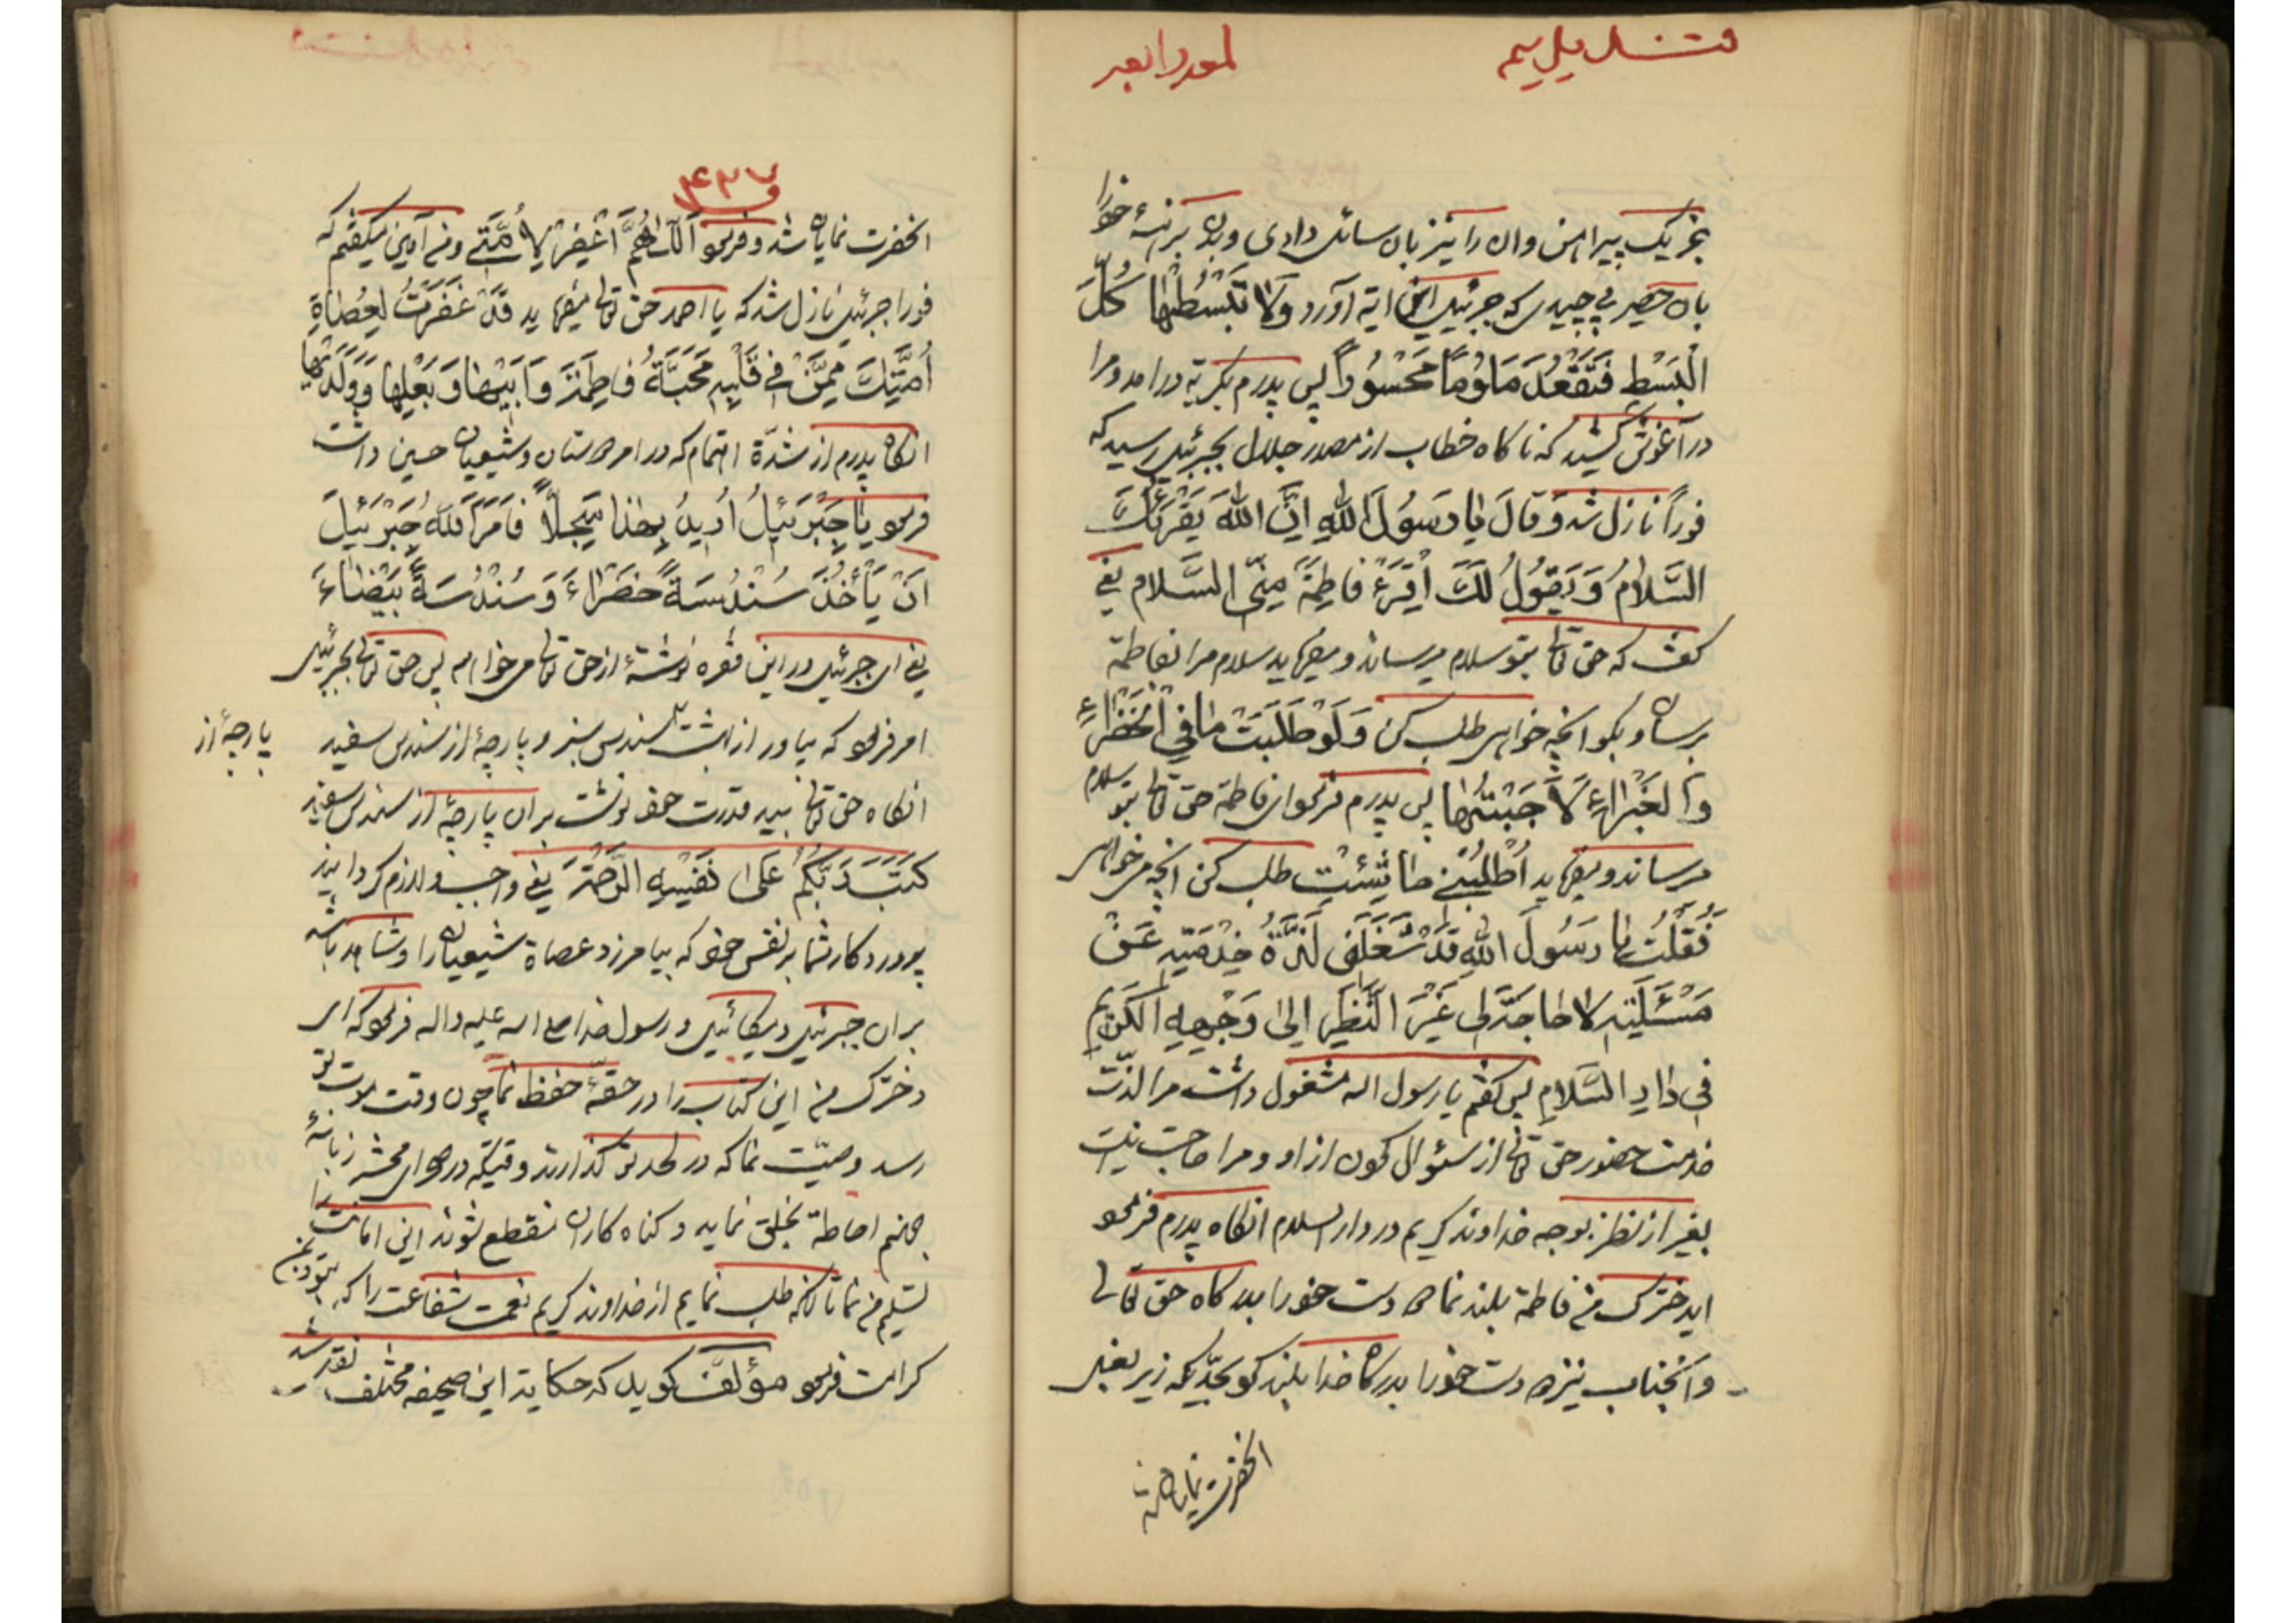 قندیل سیم
لمعه رابعه
بجز یک پیراهن وان را نیز بان سائل دادی و بدن برهنهٔ خود را
بان حصیر پیچیدی که جبرئیل این ایة آورد وَلا تَبْسُطْها كُلَّ
الْبَسْطِ فَتَقْعُدَ مَلُوماً مَحْسُوراً پس پدرم بگریه درامد و مرا
در آغوش کشید که ناکاه خطاب از مصدر جلال بجبرئیل رسید که
فوراً نازل شد وَ قالَ یا رَسُولَ اللهِ اِنَّ اللهَ یَقْرَئُكَ
السَّلامُ وَ یَقُولُ لَكَ اِقْرَءْ فاطِمَةَ مِنِّی السَّلام یعنی
کفت که حق تعالی بتو سلام میرساند و میفرماید سلام مرا بفاطمة
برسان و بکو انچه خواهی طلب کن وَ لَوْ طَلَبَتْ ما فِی الْخَضْراءِ
وَ الْغَبْراءِ لَاَجَبْتُها پس پدرم فرمود ای فاطمة حق تعالی بتو سلام
میرساند و میفرماید اُطْلُبِی ما شِئْتِ طلب کن انچه میخواهی
فَقُلْتُ یا رَسُولَ اللهِ قَدْ شَغَلَنی لَذَّةُ خِدْمَتِهِ عَنْ
مَسْئَلَتِهِ لا حاجَةَ لی غَیْرَ النَّظَرِ اِلی وَجْهِهِ الْكَریمِ
فی دارِ السَّلامِ پس کفتم یا رسول الله مشغول داشت مرا لذّت
خدمت حضور حق تعالی از سئوال کردن از او و مرا حاجت نیست
بغیر از نظر بوجه خداوند کریم در دار السلام انکاه پدرم فرمود
ایدخترک من فاطمة بلند نما دست خود را بدرکاه حق تعالی
و آنجناب نیز دست خود را بدرکاه خدا بلند کرد بحدّیکه زیر بغل
انحضرت نمایان شد
۴۳۷
انحضرت نمایان شد و فرمود اَللّهُمَّ اغْفِرْ لِاُمَّتی و من آمین میکفتم که
فورا جبرئیل نازل شد که یا احمد حق تعالی میفرماید قَدْ غَفَرْتُ لِعُصاةِ
اُمَّتِكَ مِمَّنْ فی قَلْبِهِ مَحَبَّةُ فاطِمَةَ وَ اَبیها وَ بَعْلِها وَ وَلَدَیْها
انکاه پدرم از شدّة اهتمام که در امر دوستان و شیعیان حسین داشت
فرمود یا جَبْرَئیلُ اُریدُ بِهذا سِجِلّاً فَاَمَرَ اللهُ جَبْرَئیلَ
اَنْ یَأْخُذَ سُنْدُسَةً خَضْراءَ وَ سُنْدُسَةً بَیْضاءَ
یعنی ای جبرئیل در این فقره نوشتهٔ از حق تعالی میخواهم پس حق تعالی بجبرئیل
امر فرمود که بیاور از بهشت سندس سبز و پارچهٔ از سندس سفید
پارچهٔ از
انکاه حق تعالی بید قدرت خود نوشت بر ان پارچهٔ از سندس سفید
كَتَبَ رَبُّكُمْ عَلی نَفْسِهِ الرَّحْمَةَ یعنی واجب و لازم کردانید
پروردکار شما بر نفس خود که بیامرزد عصاة شیعیان را و شاهد باشد
بر ان جبرئیل و میکائیل و رسول خدا صلی الله علیه واله فرمود که ای
دخترک من این کتاب را در حقّهٔ حفظ نما چون وقت موت تو
رسد وصیّت نما که در لحد تو کذارند وقتیکه در صحرای محشر زبانهٔ
جهنم احاطة بخلق نماید و کناه کاران منقطع شوند این امانت را
تسلیم من نما تا انکه طلب نمایم از خداوند کریم نعمت شفاعت را که بتو و بمن
کرامت فرمود مؤلف کوید که حکایة این صحیفه مختلف نقل شد